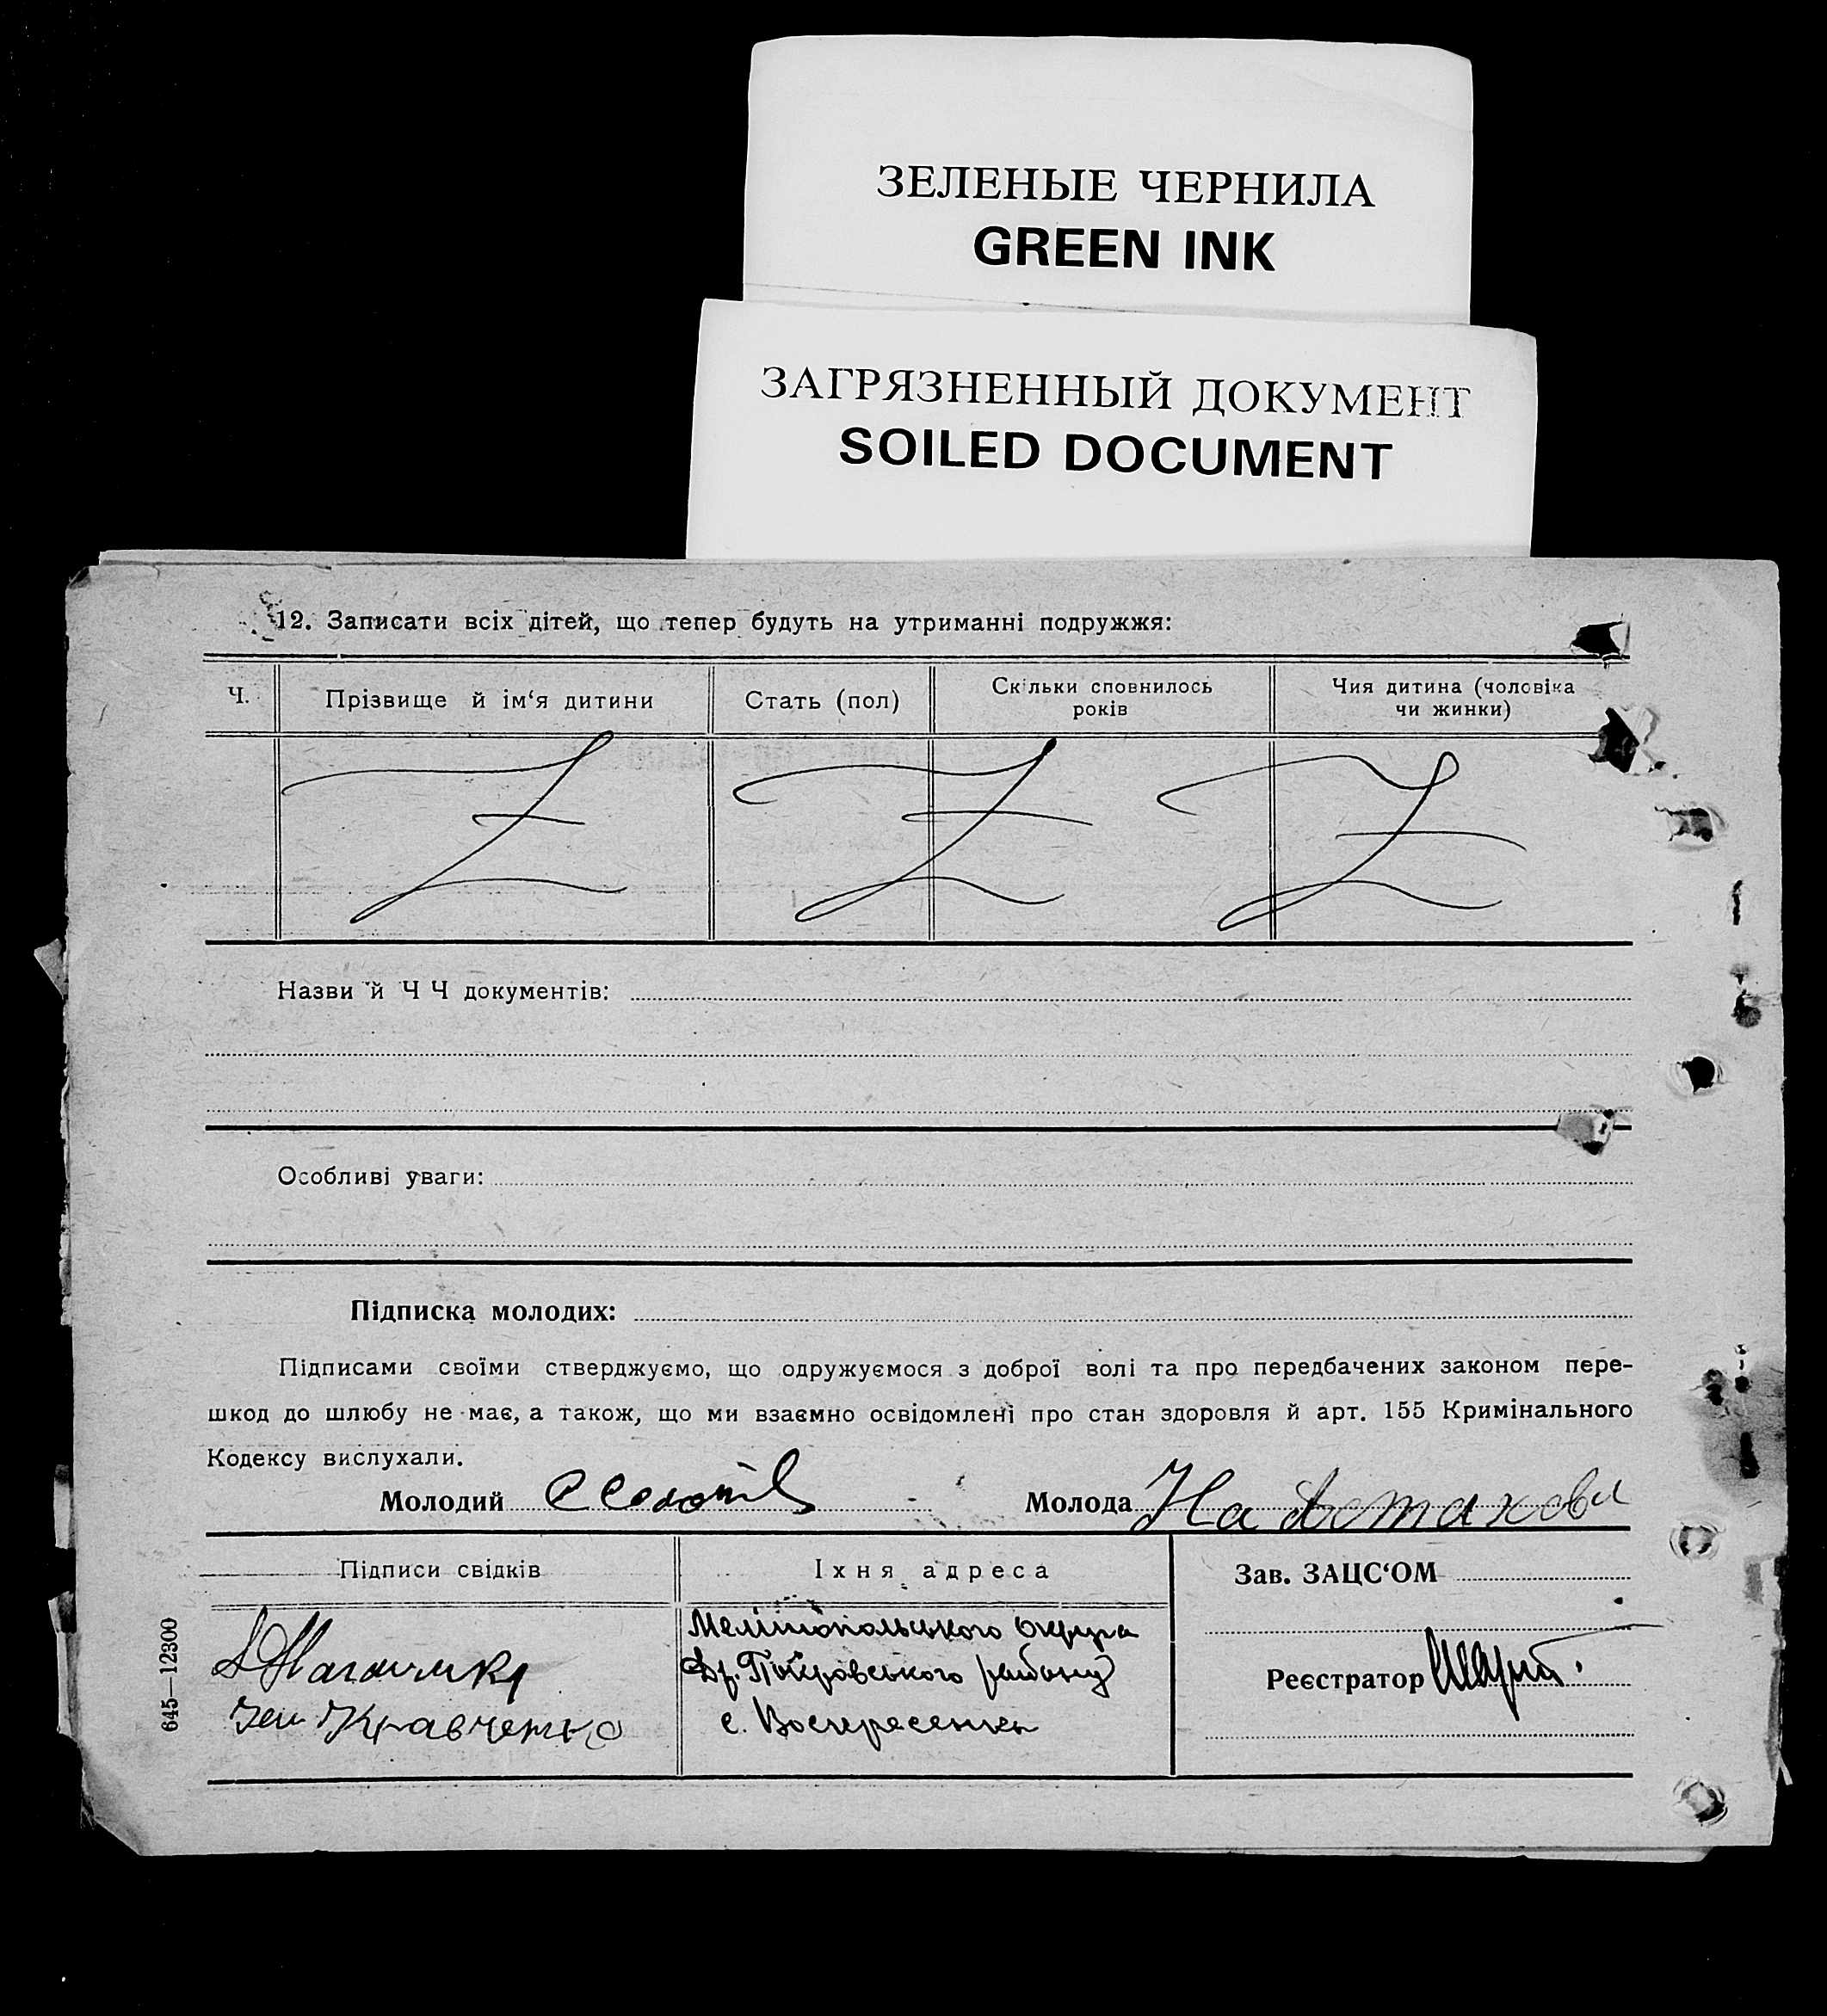 ЗЕЛЕНЫЕ ЧЕРНИЛА
GREEN INK
ЗАГРЯЗНЕННЫЙ ДОКУМЕНТ
SOILED DOCUMENT
12. Записати всіх дітей, що тепер будуть на утриманні подружжя:
Ч.
Прізвище й ім‘я дитини
Стать (пол)
Скільки сповнилось
років
Чия дитина (чоловіка
чи жинки)
Назви й Ч Ч документів:
Особливі уваги:
Підписка молодих:
Підписами своїми стверджуємо, що одружуємося з доброї волі та про передбачених законом пере-
шкод до шлюбу не має, а також, що ми взаємно освідомлені про стан здоровля й арт. 155 Кримінального
Кодексу вислухали.
Молодий
Молода
Підписи свідків
Їхня адреса
Зав. ЗАЦС‘ОМ
Мелітопольського округа
Покровського району
с. Воскресенка
Реєстратор
Кравченко
645—12300